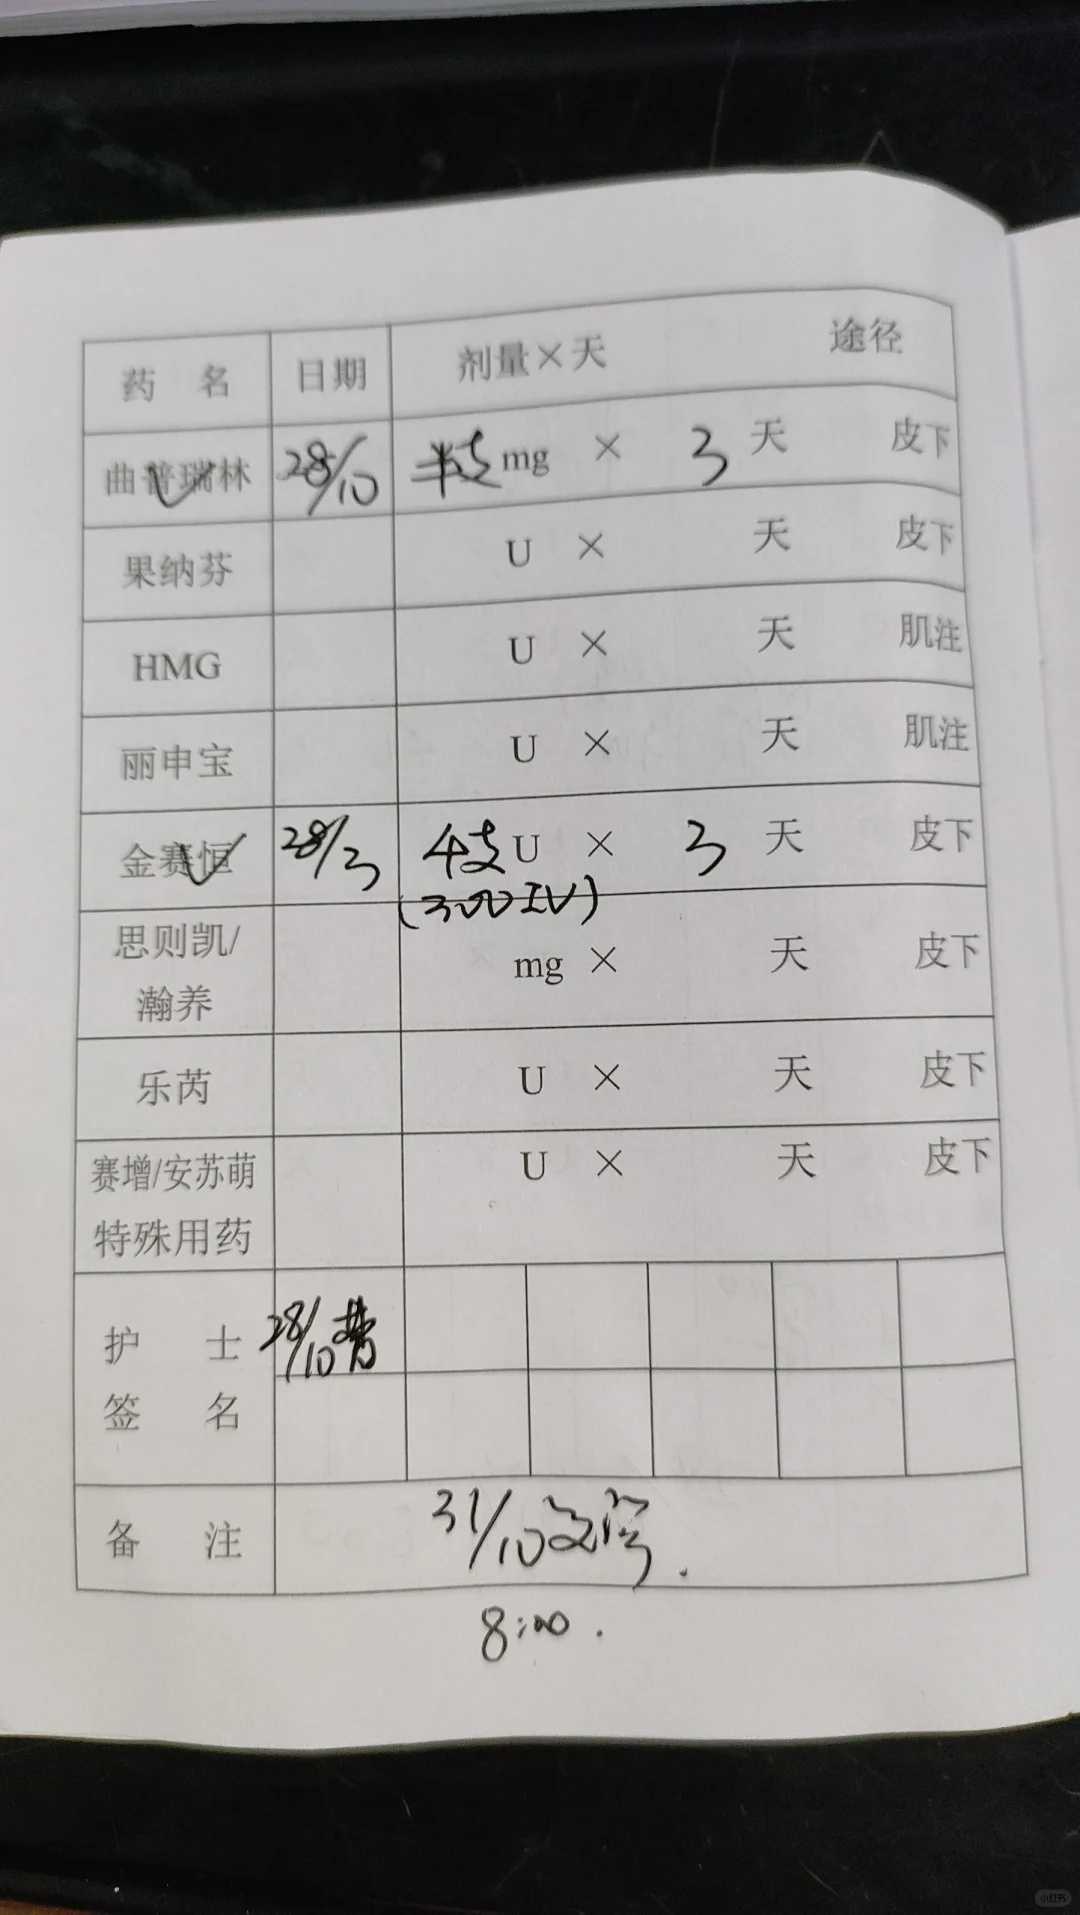 药 名 日期 剂量×天 途径
曲普瑞林 28/10 半支mg × 3 天 皮下
果纳芬 U × 天 皮下
HMG U × 天 肌注
丽申宝 U × 天 肌注
金赛恒 28/3 4支U × 3 天 皮下
(300IU)
思则凯/
瀚养 mg × 天 皮下
乐芮 U × 天 皮下
赛增/安苏萌 U × 天 皮下
特殊用药
护 士 28/10
签 名
备 注 31/10
8:00.
小红书